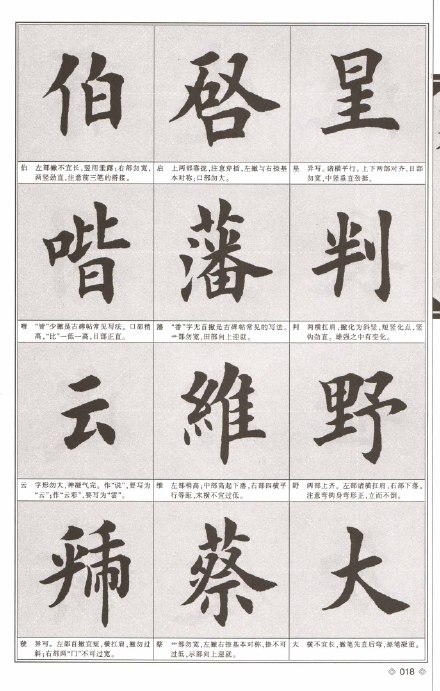 伯 啓 星
伯 左部撇不宜长,竖用垂露;右部勿宽,
两竖劲直,注意前三笔的搭接。
启 上两部靠拢,注意穿插,左撇与右捺基
本对称;口部勿大。
星 异写。诸横平行。上下两部对齐,日部
勿宽,中竖垂直劲挺。
喈 藩 判
喈 “皆”少撇是古碑帖常见写法。口部稍
高,“比”一低一高,日部正直。
藩 “番”字无首撇是古碑帖常见的写法。
艹部勿宽,田部向上迎就。
判 两横扛肩,撇化为斜竖,短竖化点,竖
钩劲直。雄强之中有变化。
云 維 野
云 字形勿大,神凝气完。作“说”,要写为
“云”;作“云彩”,要写为“雲”。
维 左部稍高;中部高起下落,右部四横平
行等距,末横不宜过低。
野 两部上齐。左部诸横扛肩,右部下落。
注意弯钩身弯形正,立而不倒。
蔡 大
异写。左部首撇宜短,横扛肩,撇勿过
斜;右部两“门”不可过宽。
蔡 艹部勿宽,左撇右捺基本对称,捺不可
过低,示部向上迎就。
大 横不宜长,撇笔先直后弯,捺笔凝重。
018